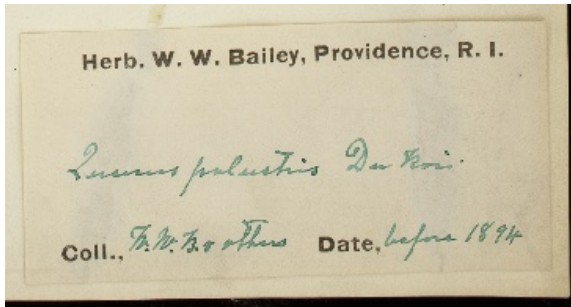 Herb. W. W. Bailey, Providence, R. I.
Quercus palustris Du Roi.
Coll., W. W. B. & others Date, before 1894